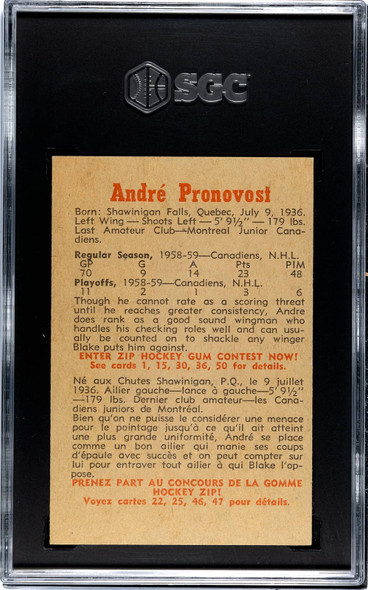 SGC
André Pronovost
Born: Shawinigan Falls, Quebec, July 9, 1936.
Left Wing — Shoots Left — 5' 9½" — 179 lbs.
Last Amateur Club—Montreal Junior Cana-
diens.
Regular Season, 1958-59—Canadiens, N.H.L.
GP G A Pts PIM
70 9 14 23 48
Playoffs, 1958-59—Canadiens, N.H.L.
11 2 1 3 6
Though he cannot rate as a scoring threat
until he reaches greater consistency, Andre
does rank as a good sound wingman who
handles his checking roles well and can usu-
ally be counted on to shackle any winger
Blake puts him against.
ENTER ZIP HOCKEY GUM CONTEST NOW!
See cards 1, 15, 30, 36, 50 for details.
Né aux Chutes Shawinigan, P.Q., le 9 juillet
1936. Ailier gauche—lance à gauche—5' 9½"
—179 lbs. Dernier club amateur—les Cana-
diens juniors de Montréal.
Bien qu'on ne puisse le considérer une menace
pour le pointage jusqu'à ce qu'il ait atteint
une plus grande uniformité, André se place
comme un bon ailier qui manie ses coups
d'épaule avec succès et on peut compter sur
lui pour entraver tout ailier à qui Blake l'op-
pose.
PRENEZ PART AU CONCOURS DE LA GOMME
HOCKEY ZIP!
Voyez cartes 22, 25, 46, 47 pour détails.